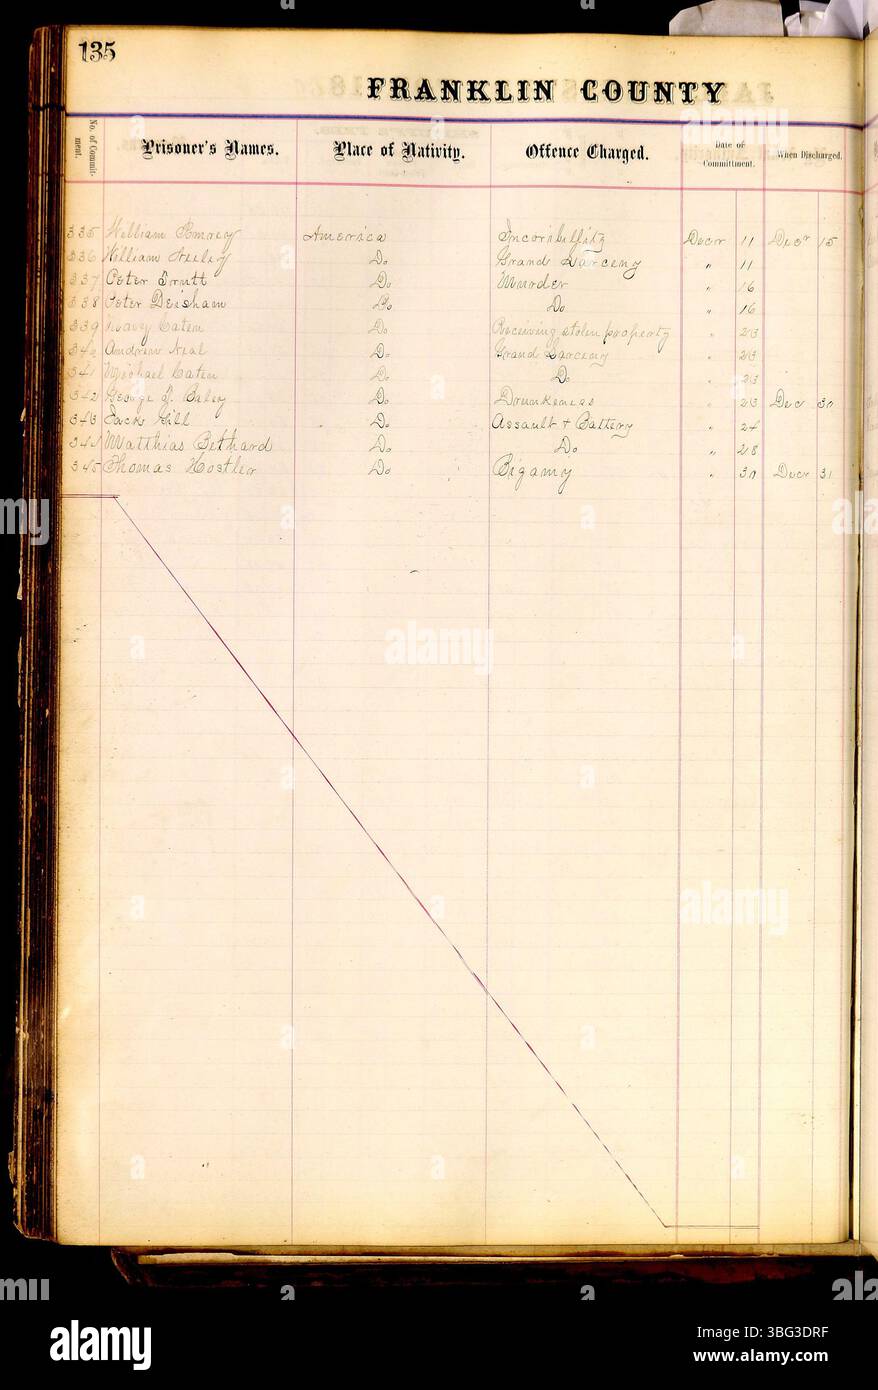 135
FRANKLIN COUNTY
No. of Commit-
ment.
Prisoner's Names.
Place of Nativity.
Offence Charged.
Date of
Committment.
When Discharged.
335 William America Decr 11 Decr 15
336 William Do Grand Larceny " 11
337 Peter Do Murder " 16
338 Peter Do Do " 16
339 Do Receiving stolen property " 23
340 Andrew Neal Do Grand Larceny " 23
341 Michael Do Do " 23
342 George Do Drunkeness " 23 Decr 30
343 Jack Hill Do Assault & Battery " 24
344 Matthias Bethard Do Do " 28
345 Thomas Hostler Do Bigamy " 30 Decr 31
alamy
alamy
Image ID: 3BG3DRF
www.alamy.com